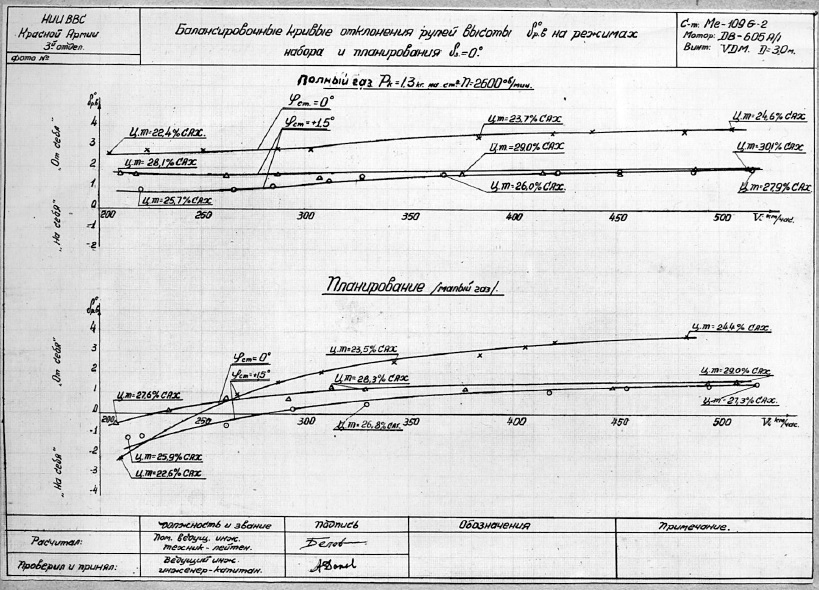 НИИ ВВС
Красной Армии
3й отдел.
фото №
Балансировочные кривые отклонения рулей высоты δ°р.в на режимах
набора и планирования δз.=0°.
С-т: Ме-109 G-2
Мотор: DB-605 A/1
Винт: VDM. D=3,0м.
Полный газ Рк=1.3 кг. на см² n=2600 об/мин.
δ°р.в
φст.=0°
φст=+1.5°
Ц.т=22.4% САХ.
Ц.т=23.7% САХ
Ц.т=24,6% САХ
Ц.т=28,1% САХ
Ц.т=29.0% САХ
Ц.т=30.1% САХ
Ц.т=25.7% САХ
Ц.т=26,0% САХ
Ц.т=27.9% САХ
„От себя"
„На себя"
4
3
2
1
0
-1
-2
200 250 300 350 400 450 500 V км/час.
Планирование /малый газ/.
δ°р.в
Ц.т=24.4% САХ
Ц.т=23,5% САХ
φст=0°
φст=+1.5°
Ц.т=28,3% САХ
Ц.т=29.0% САХ
Ц.т=27.6% САХ
Ц.т=27,3% САХ
Ц.т=26,8% САХ.
Ц.т=25,9% САХ
Ц.т=22,6% САХ
„От себя"
„На себя"
4
3
2
1
0
-1
-2
-3
-4
200 250 300 350 400 450 500 V км/час.
должность и звание Подпись Обозначения Примечание.
Расчитал: Пом. ведущ. инж.
техник-лейтен.
Проверил и принял: Ведущий инж.
инженер-капитан.